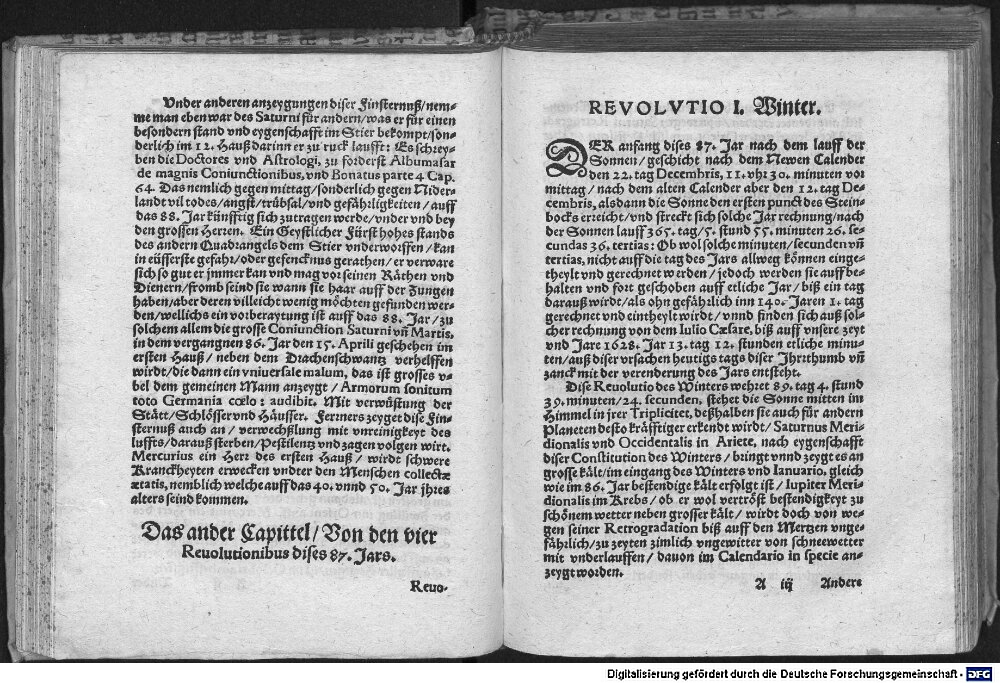 Vnder anderen anzeygungen diser Finsternuß/nem-
me man eben war des Saturni für andern/was er für einen
besondern stand vnd eygenschafft im Stier bekompt/son-
derlich im 12. Hauß darinn er zu ruck laufft: Es schrey-
ben die Doctores vnd Astrologi, zu forderst Albumasar
de magnis Coniunctionibus, vnd Bonatus parte 4 Cap.
64. Das nemlich gegen mittag/sonderlich gegen Nider-
landt vil todes/angst/trübsal/vnd gefährligkeiten/auff
das 88. Jar künfftig sich zutragen werde/vnder vnd bey
den grossen Herzen. Ein Geystlicher Fürst hohes stands
des andern Quadrangels dem Stier vnderworffen/kan
in eüsserste gefahr/oder gefencknus gerathen/er verware
sich so gut er jmmer kan vnd mag vor seinen Räthen vnd
Dienern/fromb seind sie wann sie haar auff der Zungen
haben/aber deren villeicht wenig möchten gefunden wer-
den/wellichs ein vorberaytung ist auff das 88. Jar/zu
solchem allem die grosse Coniunction Saturni vñ Martis,
in dem vergangnen 86. Jar den 15. Aprili geschehen im
ersten Hauß/neben dem Drachenschwantz verhelffen
wirdt/die dann ein vniuersale malum, das ist grosses v-
bel dem gemeinen Mann anzeygt/Armorum sonitum
toto Germania cœlo: audibit. Mit verwüstung der
Stätt/Schlösser vnd Häusser. Ferners zeyget dise Fin-
sternuß auch an/verwechßlung mit vnreinigkeyt des
luffts/darauß sterben/Pestilentz vnd zagen volgen wirt.
Mercurius ein Herz des ersten Hauß/wirdt schwere
Kranckheyten erwecken vndter den Menschen collectæ
ætatis, nemblich welche auff das 40. vnnd 50. Jar jhres
alters seind kommen.
Das ander Capittel/Von den vier
Reuolutionibus dises 87. Jars.
Reuo-
REVOLVTIO I. Winter.
DER anfang dises 87. Jar nach dem lauff der
Sonnen/geschicht nach dem Newen Calender
den 22. tag Decembris, 11. vhr 30. minuten vor
mittag/nach dem alten Calender aber den 12. tag De-
cembris, als dann die Sonne den ersten punct des Stein-
bocks erreicht/vnd streckt sich solche Jar rechnung/nach
der Sonnen lauff 365. tag/5. stund 55. minuten 26. se-
cundas 36. tertias: Ob wol solche minuten/secunden vñ
tertias, nicht auff die tag des Jars allweg können einge-
theylt vnd gerechnet werden/jedoch werden sie auff be-
halten vnd fort geschoben auff etliche Jar/biß ein tag
darauß wirdt/als ohn gefährlich inn 140. Jaren 1. tag
gerechnet vnd eintheylt wirdt/vnnd finden sich auß sol-
cher rechnung von dem Iulio Cæsare, biß auff vnsere zeyt
vnd Jare 1628. Jar 13. tag 12. stunden etliche minu-
ten/auß diser vrsachen heutigs tags diser Jhrthumb vñ
zanck mit der verenderung des Jars entsteht.
Dise Reuolutio des Winters wehret 89. tag 4. stund
39. minuten/24. secunden, stehet die Sonne mitten im
Himmel in jrer Triplicitet, deßhalben sie auch für andern
Planeten desto kräfftiger erkendt wirdt/Saturnus Meri-
dionalis vnd Occidentalis in Ariete, nach eygenschafft
diser Constitution des Winters/bringt vnnd zeygt es an
grosse kält/im eingang des Winters vnd Ianuario, gleich
wie im 86. Jar bestendige kält erfolgt ist/Iupiter Meri-
dionalis im Krebs/ob er wol vertröst bestendigkeyt zu
schönem wetter neben grosser kält/wirdt doch von we-
gen seiner Retrogradation biß auff den Mertzen vnge-
fährlich/zu zeyten zimlich vngewitter von schneewetter
mit vnderlauffen/dauon im Calendario in specie an-
zeygt worden.
A iij Andere
Digitalisierung gefördert durch die Deutsche Forschungsgemeinschaft - DFG